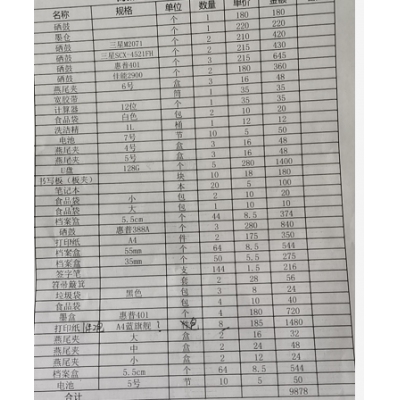 名称 规格 单位 数量 单价 金额
硒鼓 个 1 180 180
墨仓 个 1 220 220
硒鼓 三星M2071 个 2 210 420
硒鼓 三星SCX-4521FH 个 2 215 430
硒鼓 惠普401 个 3 215 645
硒鼓 佳能2900 个 2 180 360
燕尾夹 6号 盒 3 16 48
宽胶带 筒 1 35 35
计算器 12位 个 1 35 35
食品袋 白色 包 2 10 20
洗洁精 1L 桶 1 12 12
电池 7号 节 10 5 50
燕尾夹 4号 盒 3 16 48
燕尾夹 5号 盒 3 16 48
U盘 128G 个 5 280 1400
书写板（板夹） 块 10 18 180
笔记本 本 20 5 100
食品袋 小 包 2 10 20
食品袋 大 包 1 10 10
档案盒 5.5cm 个 44 8.5 374
硒鼓 惠普388A 个 3 280 840
打印纸 A4 件 2 175 350
档案盒 55mm 个 64 8.5 544
档案盒 35mm 个 50 5.5 275
签字笔 支 144 1.5 216
套 2 28 56
垃圾袋 黑色 包 3 8 24
食品袋 包 4 10 40
墨盒 惠普401 个 4 180 720
打印纸 A4蓝旗舰 8 185 1480
燕尾夹 大 盒 2 16 32
燕尾夹 中 盒 2 24 48
燕尾夹 小 盒 2 12 24
档案盒 5.5cm 个 64 8.5 544
电池 5号 节 10 5 50
合计 9878